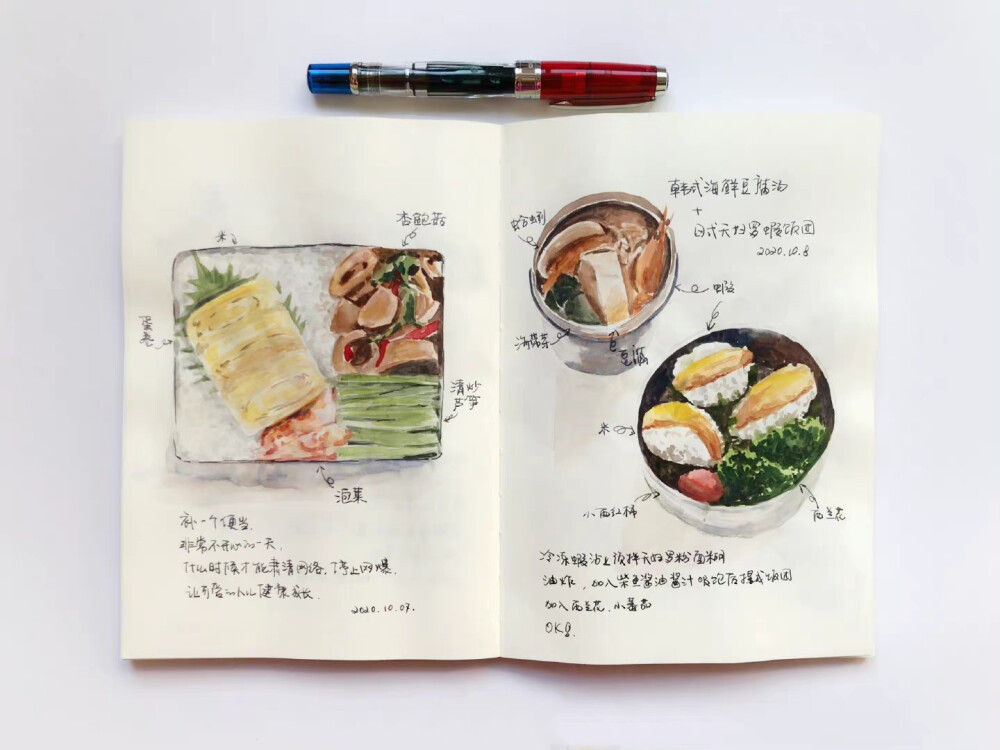 米
杏鲍菇
蛋卷
清炒
芦笋
泡菜
补一个便当.
非常不开心的一天,
什么时候才能肃清网络,停止网爆.
让可爱的人儿健康成长.
2020.10.07.
韩式海鲜豆腐汤
+
日式天妇罗虾饭团
2020.10.8
蛤蜊
虾
海带菜
豆腐
米
小西红柿
西兰花
冷冻虾沾上预拌天妇罗粉面糊
油炸,加入柴鱼酱油酱汁吸饱后握成饭团
加入西兰花.小蕃茄
OK!
堆糖